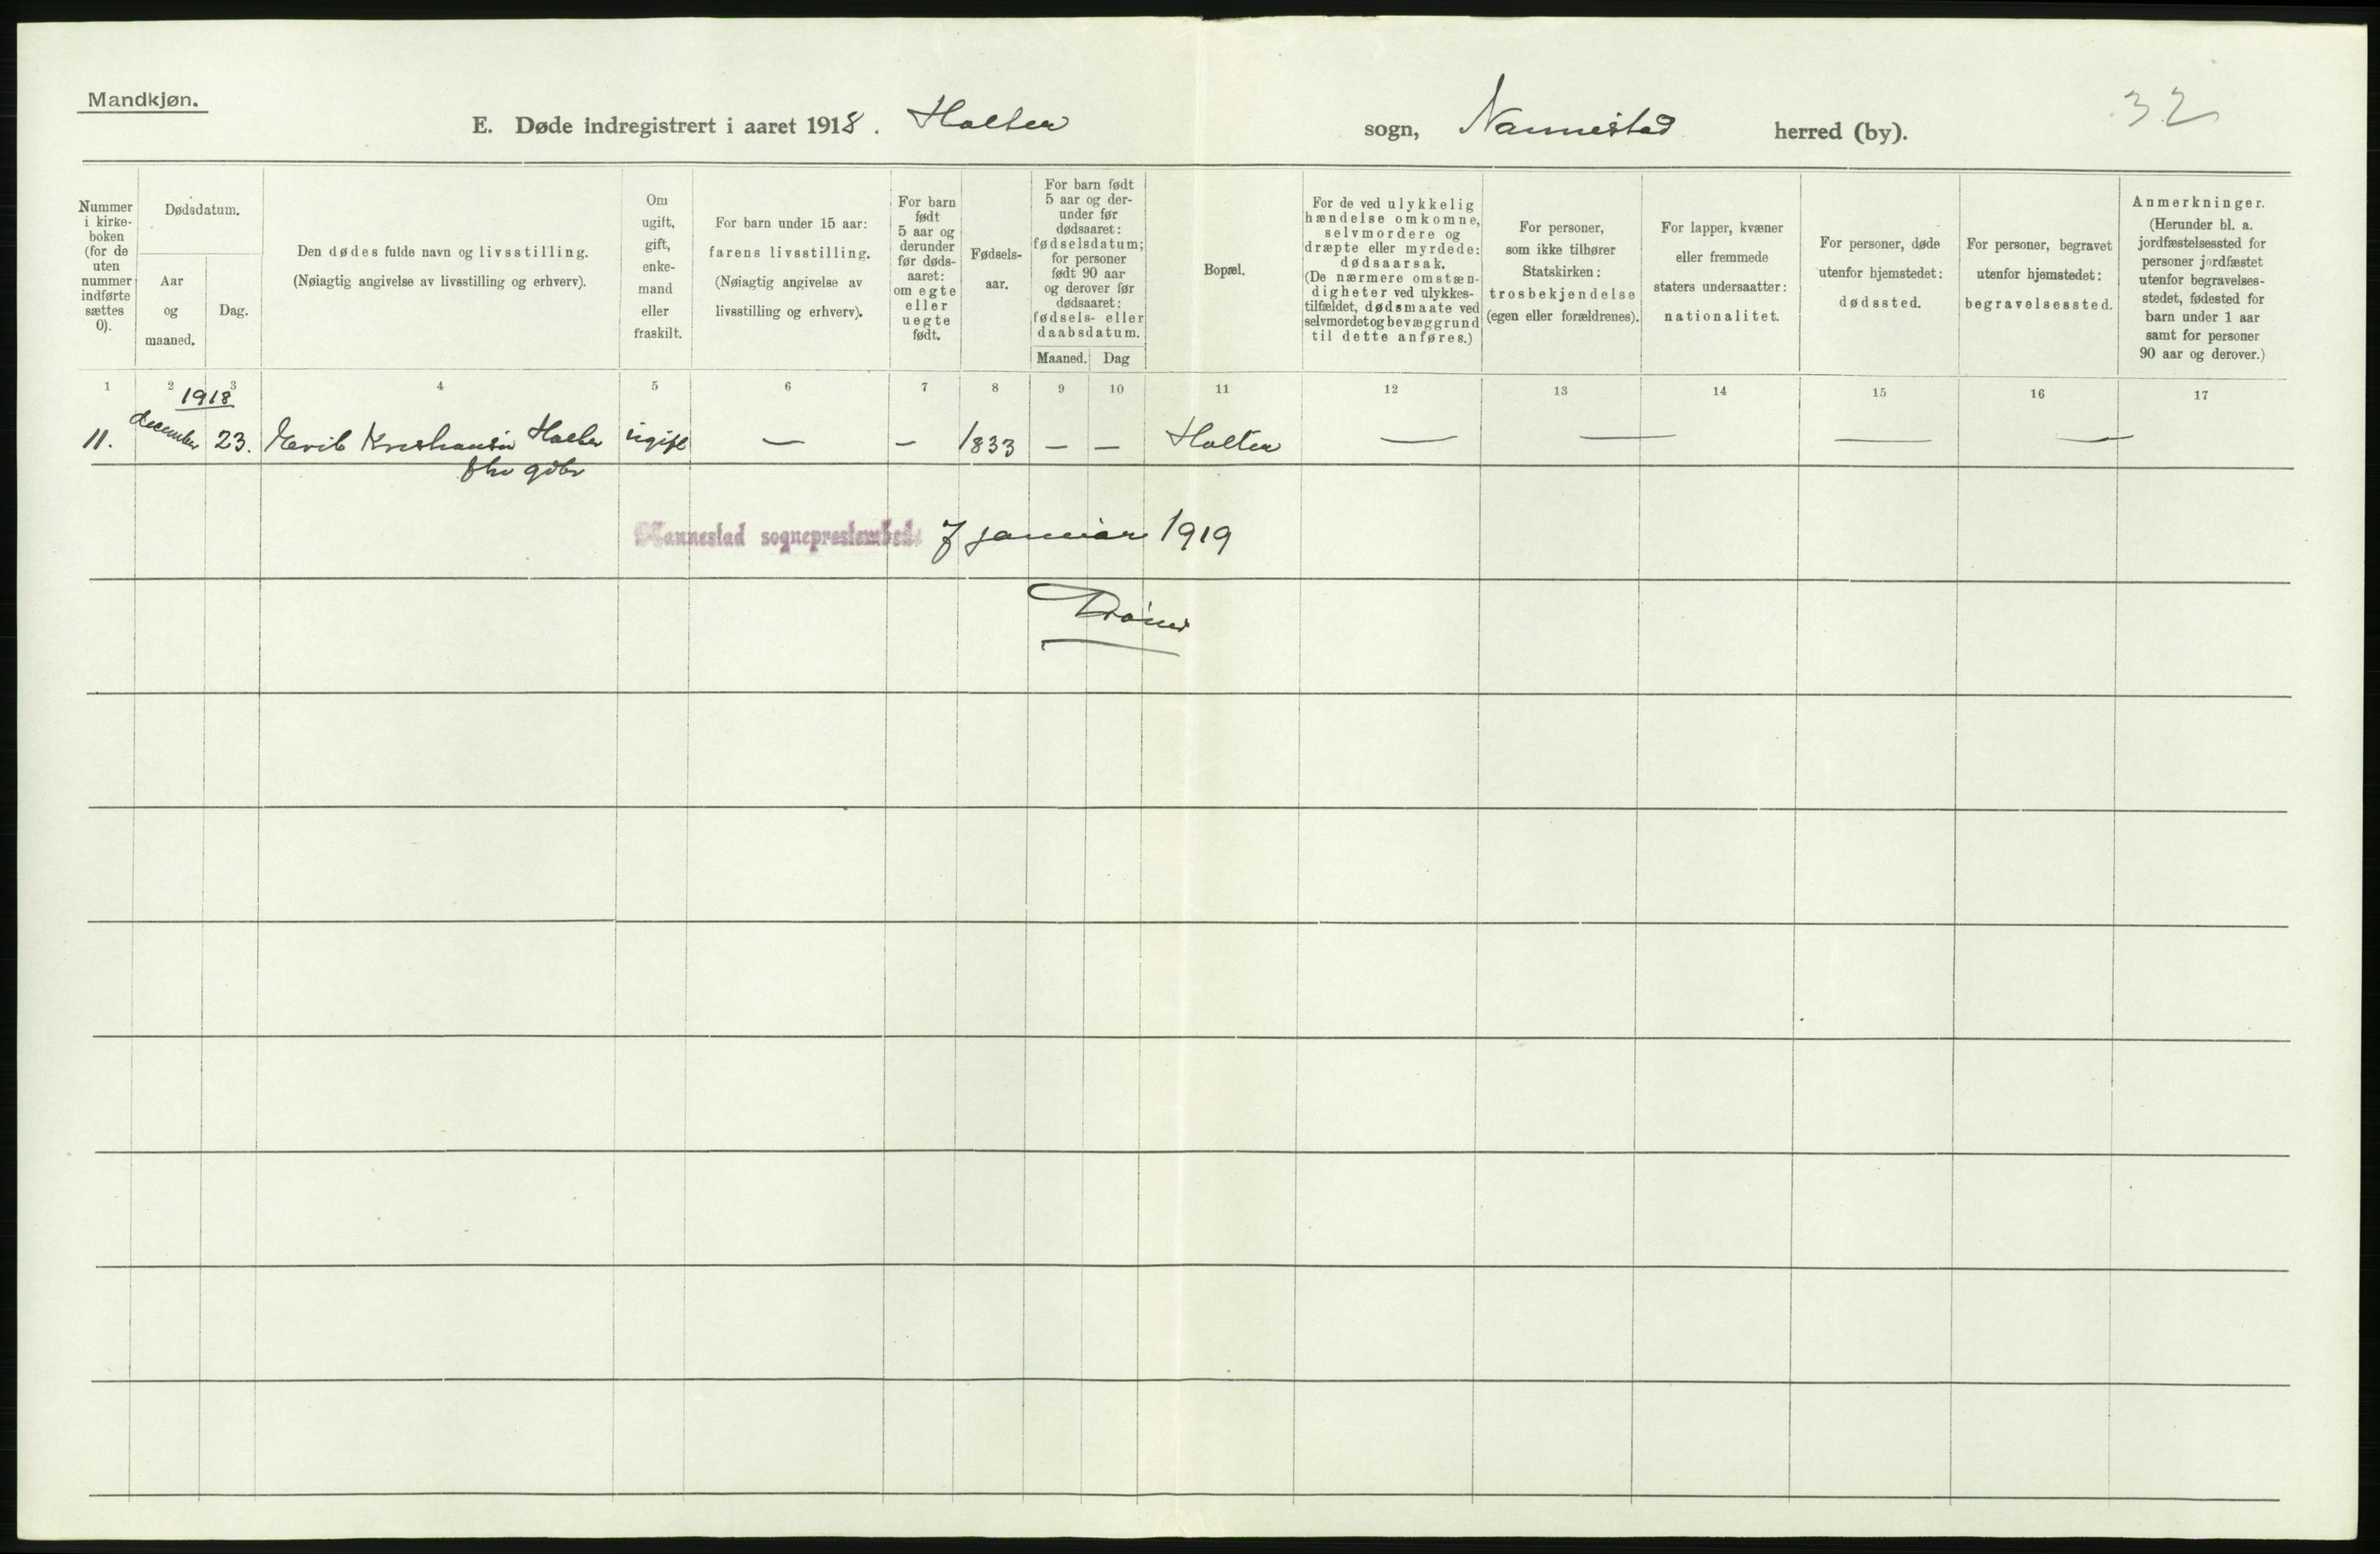 Mandkjøn.
E. Døde indregistrert i aaret 1918. Holter sogn, Nannestad herred (by). 32
Nummer
i kirke-
boken
(for de
uten
nummer
indførte
sættes
0).
Dødsdatum.
Aar
og
maaned.
Dag.
Den dødes fulde navn og livsstilling.
(Nøiagtig angivelse av livsstilling og erhverv).
Om
ugift,
gift,
enke-
mand
eller
fraskilt.
For barn under 15 aar:
farens livsstilling.
(Nøiagtig angivelse av
livsstilling og erhverv).
For barn
født
5 aar og
derunder
før døds-
aaret:
om egte
eller
uegte
født.
Fødsels-
aar.
For barn født
5 aar og der-
under før
dødsaaret:
fødselsdatum;
for personer
født 90 aar
og derover før
dødsaaret:
fødsels- eller
daabsdatum.
Maaned. Dag
Bopæl.
For de ved ulykkelig
hændelse omkomne,
selvmordere og
dræpte eller myrdede:
dødsaarsak.
(De nærmere omstæn-
digheter ved ulykkes-
tilfældet, dødsmaate ved
selvmordet og bevæggrund
til dette anføres.)
For personer,
som ikke tilhører
Statskirken:
trosbekjendelse
(egen eller forældrenes).
For lapper, kvæner
eller fremmede
staters undersaatter:
nationalitet.
For personer, døde
utenfor hjemstedet:
dødssted.
For personer, begravet
utenfor hjemstedet:
begravelsessted.
Anmerkninger.
(Herunder bl. a.
jordfæstelsessted for
personer jordfæstet
utenfor begravelses-
stedet, fødested for
barn under 1 aar
samt for personer
90 aar og derover.)
1 2 3 4 5 6 7 8 9 10 11 12 13 14 15 16 17
1918
11. december 23. Kristiansen Holter ugift — — 1833 — — Holter — — — —
Nannestad sogneprestembed 7 januar 1919